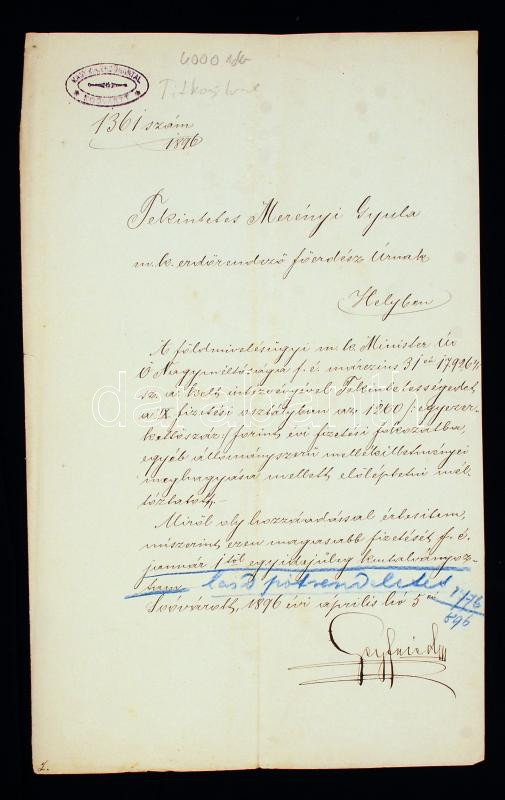 4000
1361 szám
1896
Tekintetes Merényi Gyula
m. k. erdőrendező főerdész Úrnak
Helyben
A földmivelésügyi m. k. Minister Úr
Ő Nagyméltósága f. é. márczius 31én 17926
sz. a. kelt intézvényével Tekintetességedet
a IX fizetési osztályban az 1200 /: egyezer-
kettőszáz :/ forint évi fizetési fokozatba,
egyéb állományszerű mellékilletményei
meghagyása mellett előléptetni mél-
tóztatott. –
Miről oly hozzáadással értesitem,
miszerint ezen magasabb fizetését f. é.
január 1től egyidejűleg kiutalványoz-
tam. lásd pótrendeletet
Soóvárott, 1896 évi április hó 5én
896